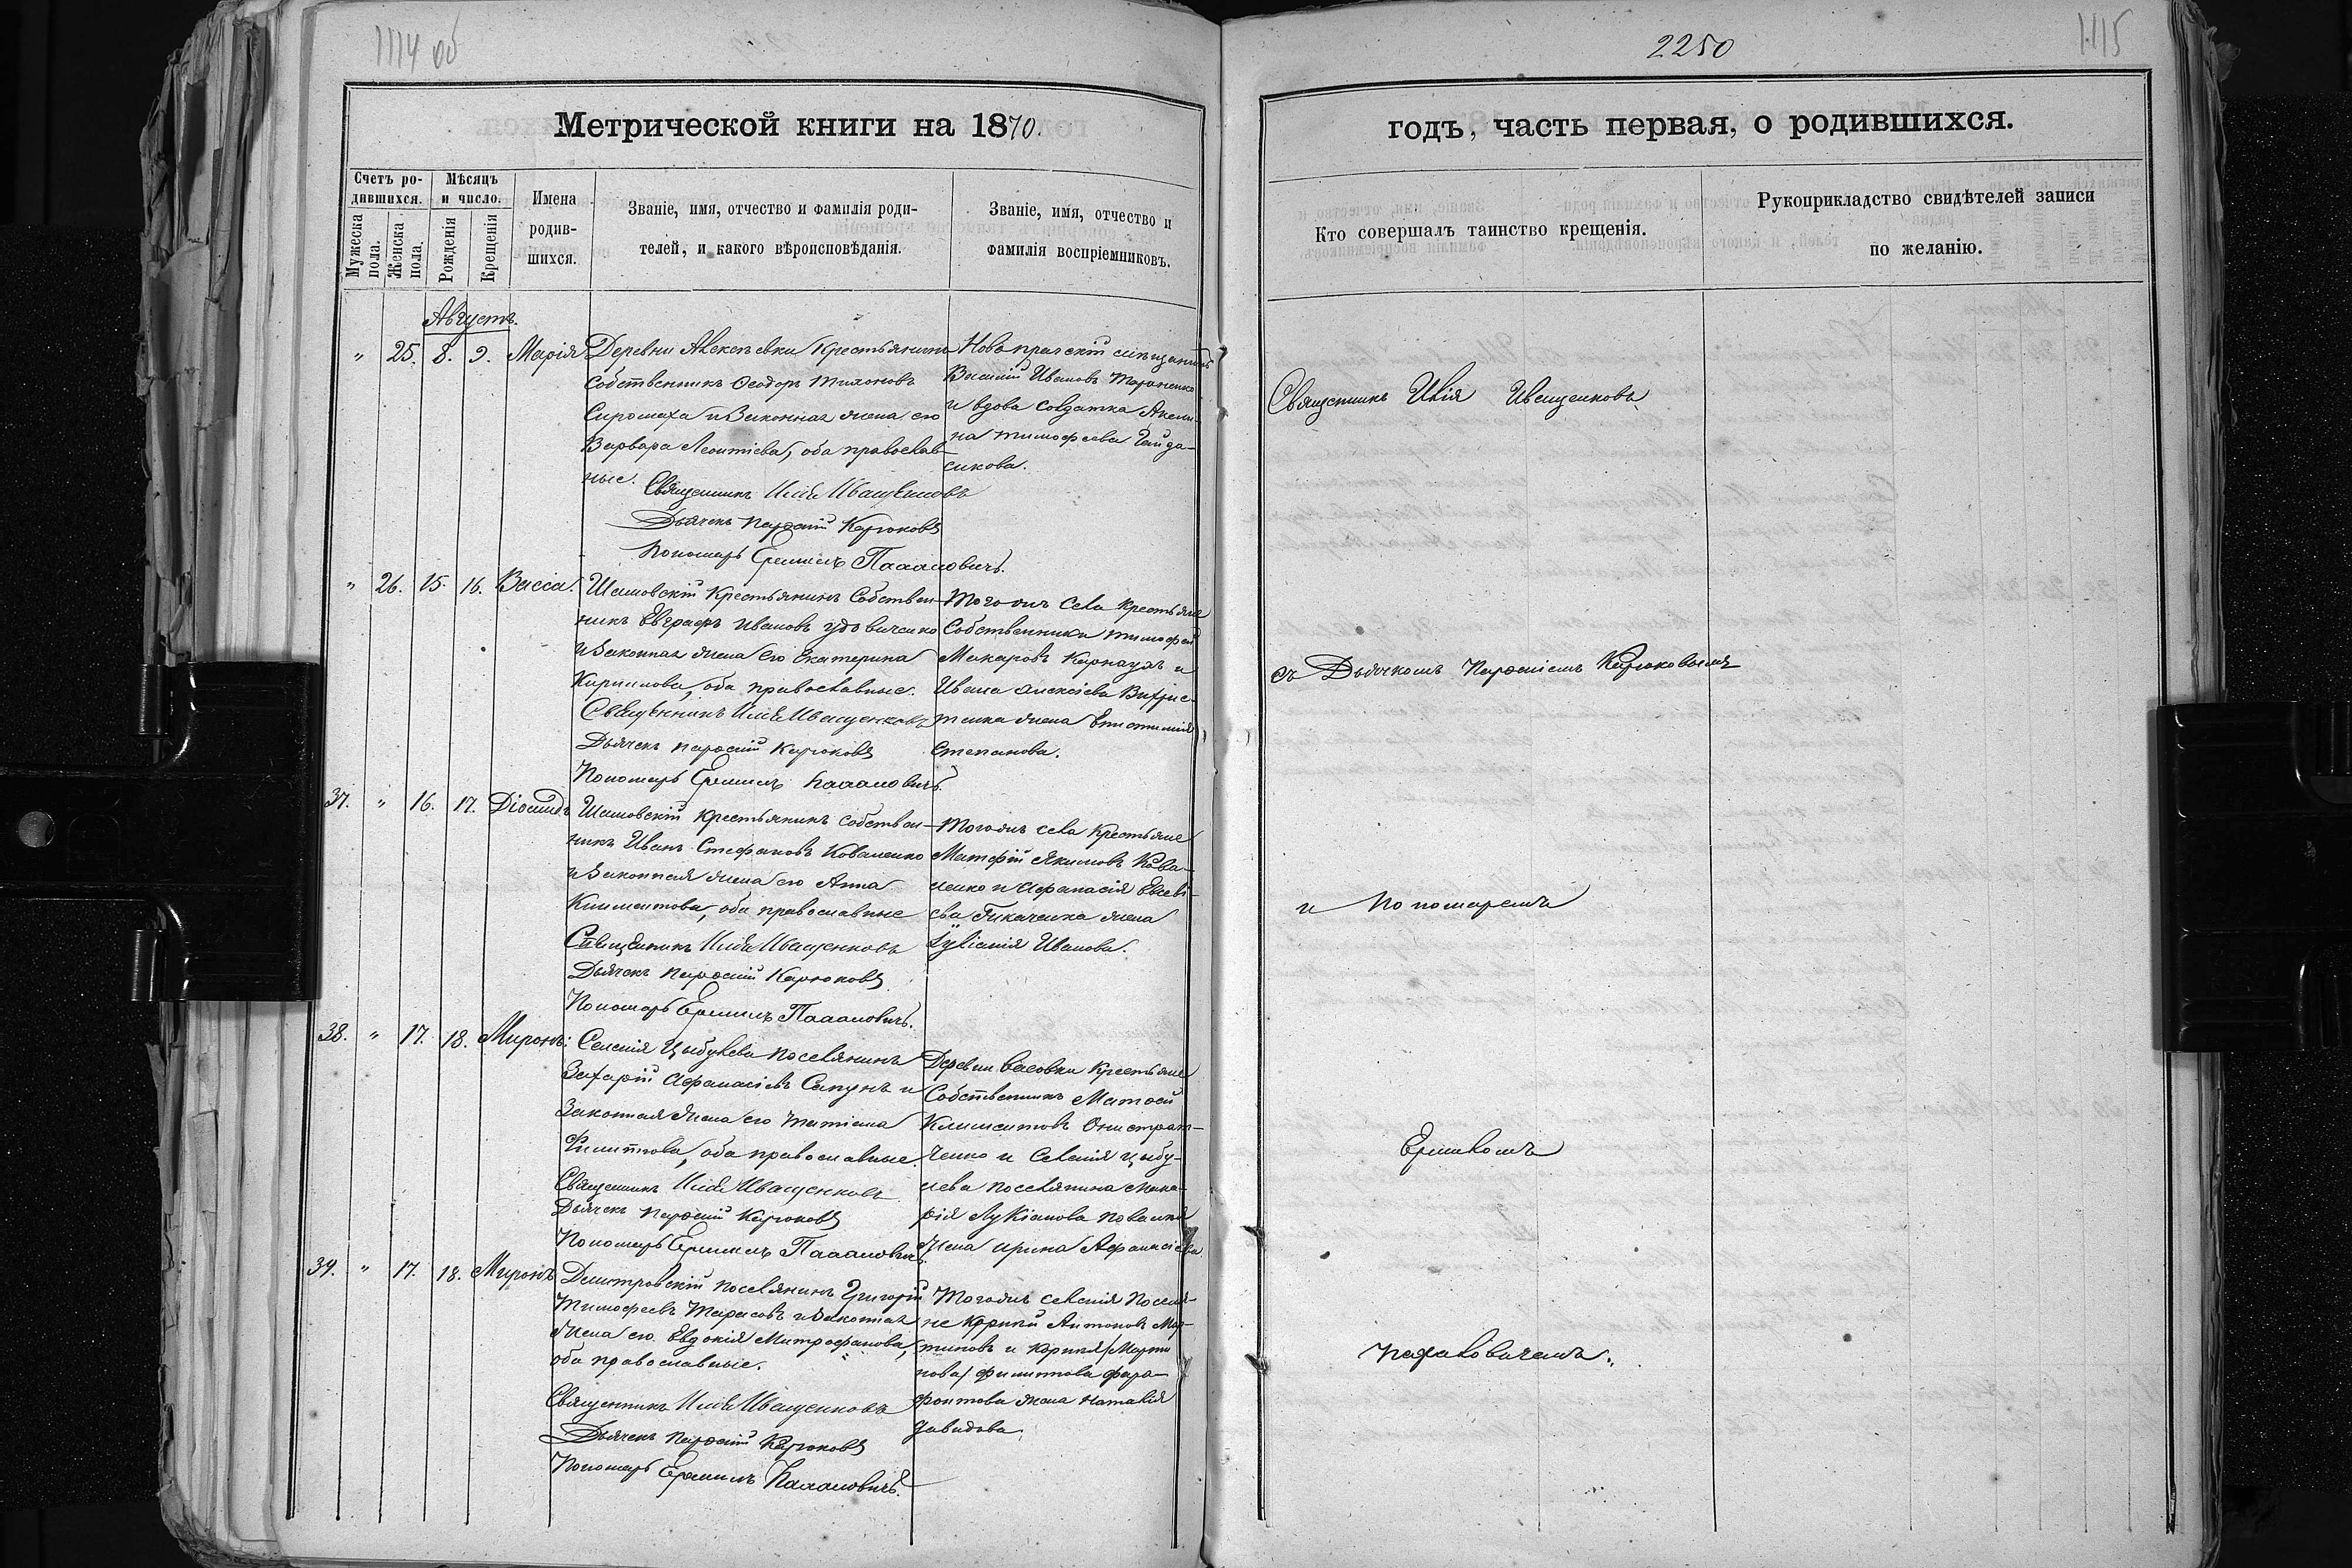 1114 об
2250
1115
Метрической книги на 1870.
годъ, часть первая, о родившихся.
Счетъ ро-
дившихся.
Мужеска
пола.
Женска
пола.
Мѣсяцъ
и число.
Рожденія
Крещенія
Имена
родив-
шихся.
Званіе, имя, отчество и фамилія роди-
телей, и какого вѣроисповѣданія.
Званіе, имя, отчество и
фамилія воспріемниковъ.
Кто совершалъ таинство крещенія.
Рукоприкладство свидѣтелей записи
по желанію.
Августъ.
" 25. 8. 9. Марія
Деревни Алексѣевки Крестьянинъ
Собственникъ Ѳеодоръ Тихоновъ
Сиромаха и Законная жена его
Варвара Леонтіева, оба православ-
ные.
Священникъ Илія Иващенковъ
Дьячекъ Карюковъ
Пономарь Ермилъ
Новопражскій мѣщанинъ
Василій Ивановъ Тараненко
и вдова солдатка Акили-
на Тимофеева Гайда-
сикова.
" 26. 15. 16. Васса.
Крестьянинъ Собствен-
никъ Евграфъ Ивановъ Удовиченко
и Законная жена его Екатерина
Кирилова, оба православные.
Священникъ Илія Иващенковъ
Дьячекъ Карюковъ
Пономарь Ермилъ
Тогожъ села крестьяне
Собственники Тимофей
Макаровъ Карнаухъ и
Ивана Алексіева
жена
Степанова.
37. " 16. 17. Діомидъ
Крестьянинъ собствен-
никъ Иванъ Стефановъ Коваленко
и Законная жена его Анна
Климентова, оба православные
Священникъ Илія Иващенковъ
Дьячекъ Карюковъ
Пономарь Ермилъ
Тогожъ села Крестьяне
Матфій Якимовъ Кова-
ленко и Афанасія Евсеві-
ева Ткаченка жена
Іуліанія Иванова.
38. " 17. 18. Миронъ.
Селенія Цыбулева поселянинъ
Захарій Афанасіевъ Сапунъ и
Законная жена его Татіана
Филиппова, оба православные.
Священникъ Илія Иващенковъ
Дьячекъ Карюковъ
Пономарь Ермилъ
Деревни Васовки Крестьяне
Собственникъ Матѳей
Климентовъ Онистрат-
ченко и Селенія Цыбу-
лева поселянина Мака-
рія Лукіанова
жена Ирина Афанасіева
39. " 17. 18. Миронъ
Дмитровскій поселянинъ Григорій
Тимофеевъ Тарасовъ и Законная
жена его Евдокія Митрофанова,
оба православные.
Священникъ Илія Иващенковъ
Дьячекъ Карюковъ
Пономарь Ермилъ
Тогожъ селенія Поселя-
не Антоновъ Мар-
тиновъ и /Марти
нова/ Филиппова Фара-
фонтова жена Наталія
Давидова
Священникъ Илія Иващенковъ
съ Дьячкомъ Карюковымъ
и Пономаремъ
Ермиломъ